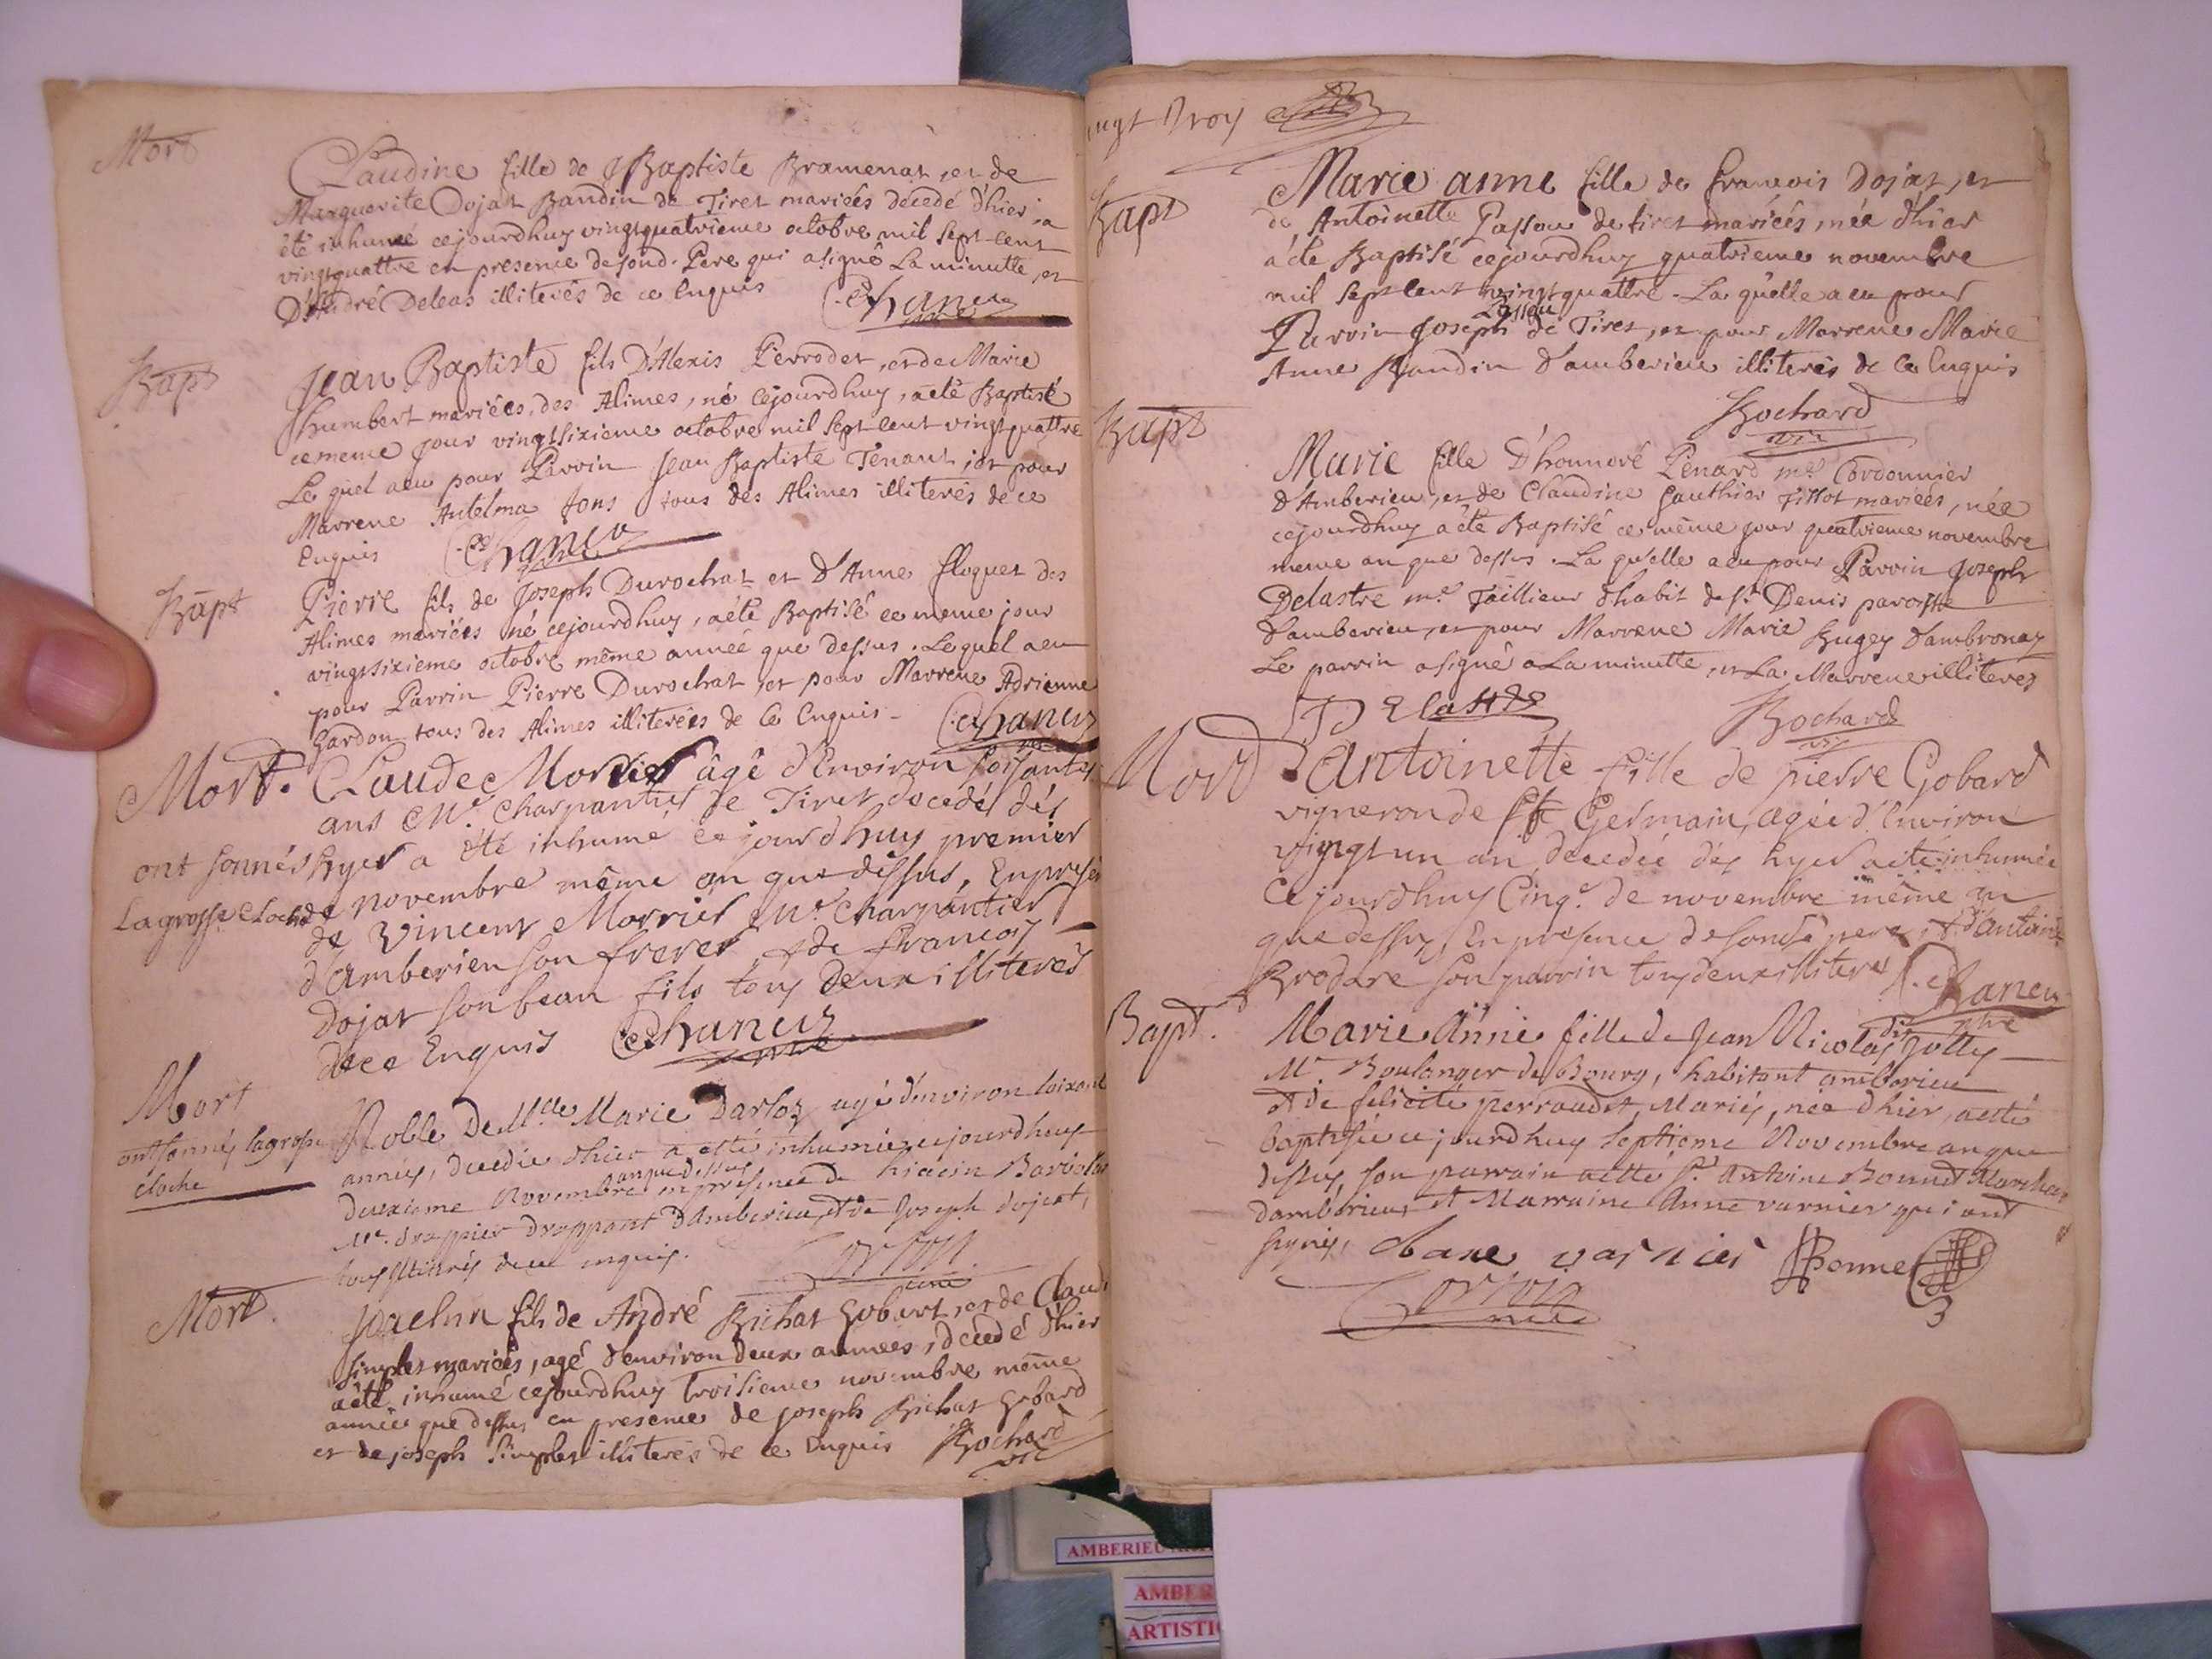 Mort
Claudine fille de J Baptiste Bramenat, et de
Marguerite Dojat Baudin de Tiret mariées décedé d'hier, a
été inhumé cejourdhuy vingtquatrieme octobre mil sept cent
vingtquattre en presence de sond. Pere qui a signé La minutte, et
D'André Deleas illiterés de ce Enquis Chaneu
Bapt
Jean Baptiste fils D'Alexis Perrodet, et de Marie
humbert mariées, des Alimes, né cejourdhuy, a été Baptisé
ce meme jour vingtsixieme octobre mil sept cent vingtquattre
Le quel a eu pour Parrin Jean Baptiste Tenant, et pour
Marrene Antelma Jons tous des Alimes illiterés de ce
Enquis Chaneu
Bapt
Pierre fils de Joseph Durochat et d'Anne floquet des
Alimes mariées né cejourdhuy, a été Baptisé ce meme jour
vingtsixieme octobre même année que dessus. Lequel a eu
pour Parrin Pierre Durochat, et pour Marrene Adrienne
Gardon tous des Alimes illiterées de ce Enquis - Chaneu
Mort. Claude Morrier âgé d'Environ soisante
ans Me. Charpantier de Tiret décédé dés
ont sonnés hyer a été inhumé ce jourd huy premier
La grosse cloche de novembre même an que dessus, En presen
de Vincent Morrier Me. Charpantier
d'amberieu son frere, et de francois
Dojat son beau fils tous deux illiterés
de ce Enquis Chaneu
Mort
ont sonnés la grosse
cloche
Noble De Mlle Marie Darloz agé d'environ soixante
années, decedée d'hier a etté inhumée cejourdhuy
an que dessus
deuxieme Novembre en presence de
Me. drappier drappant d'Amberieu, et de Joseph dojat,
tous illiterés de ce enquis.
curé
Mort.
Joachin fils de André Bichat Gobert, et de Claud
Simplet mariées, agé d'environ deux années, décedé d'hier
a été inhumé cejourdhuy troisieme novembre même
année que dessus en presence de joseph Bichat Gobard
et de joseph Simplet illiterés de ce Enquis Bochard
vic
vingt Troy
Bapt
Marie anne fille de francois Dojat, et
de Antoinette Passou de tiret mariées, née d'hier
a été Baptisé cejourdhuy quatrieme novembre
mil sept cent vingt quattre. La quelle a eu pour
Passou
Parrin Joseph de Tiret, et pour Marrene Marie
Anne Baudin d'amberieu illiterés de ce Enquis
Bochard
vic
Bapt
Marie fille D'honnoré Penard me. Cordonnier
d'Amberieu, et de Claudine Gauthier Fillot mariées, née
cejourdhuy a été Baptisé ce même jour quatrieme novembre
meme an que dessus. La quelle a eu pour Parrin Joseph
Delastre me. Taillieur d'habit de St. Denis paroisse
d'amberieu, et pour Marrene Marie Bugey d'ambronay
Le parrin a signé a La minutte, et La Marrene illiteres
Delastre Bochard
vic
Mord antoinette fille de pierre Gobard
vigneron de St Germain, agée d'Environ
vingt un an, decedée dés hyer a été inhumée
Ce jourdhuy Cinq.e de novembre même an
que dessus, En presence de son père, et d'antoine
Brodare son parrin tous deux illiteres Chaneu
Bapt.
Marie Anne fille de Jean Nicolas Jolly
Me. Boulanger de Bourg, habitant amberieu
et de félicité perraudet, Mariés, née d'hier, a etté
baptisée cejourdhuy Septieme Novembre an que
dessus, son parrain a etté Sr. Antoine Bonnet Marchan
d'ambérieu, et Marraine Anne varnier qui ont
signés, anne varnier Bonnet
curé
AMBERIEU
AMBER
ARTISTI